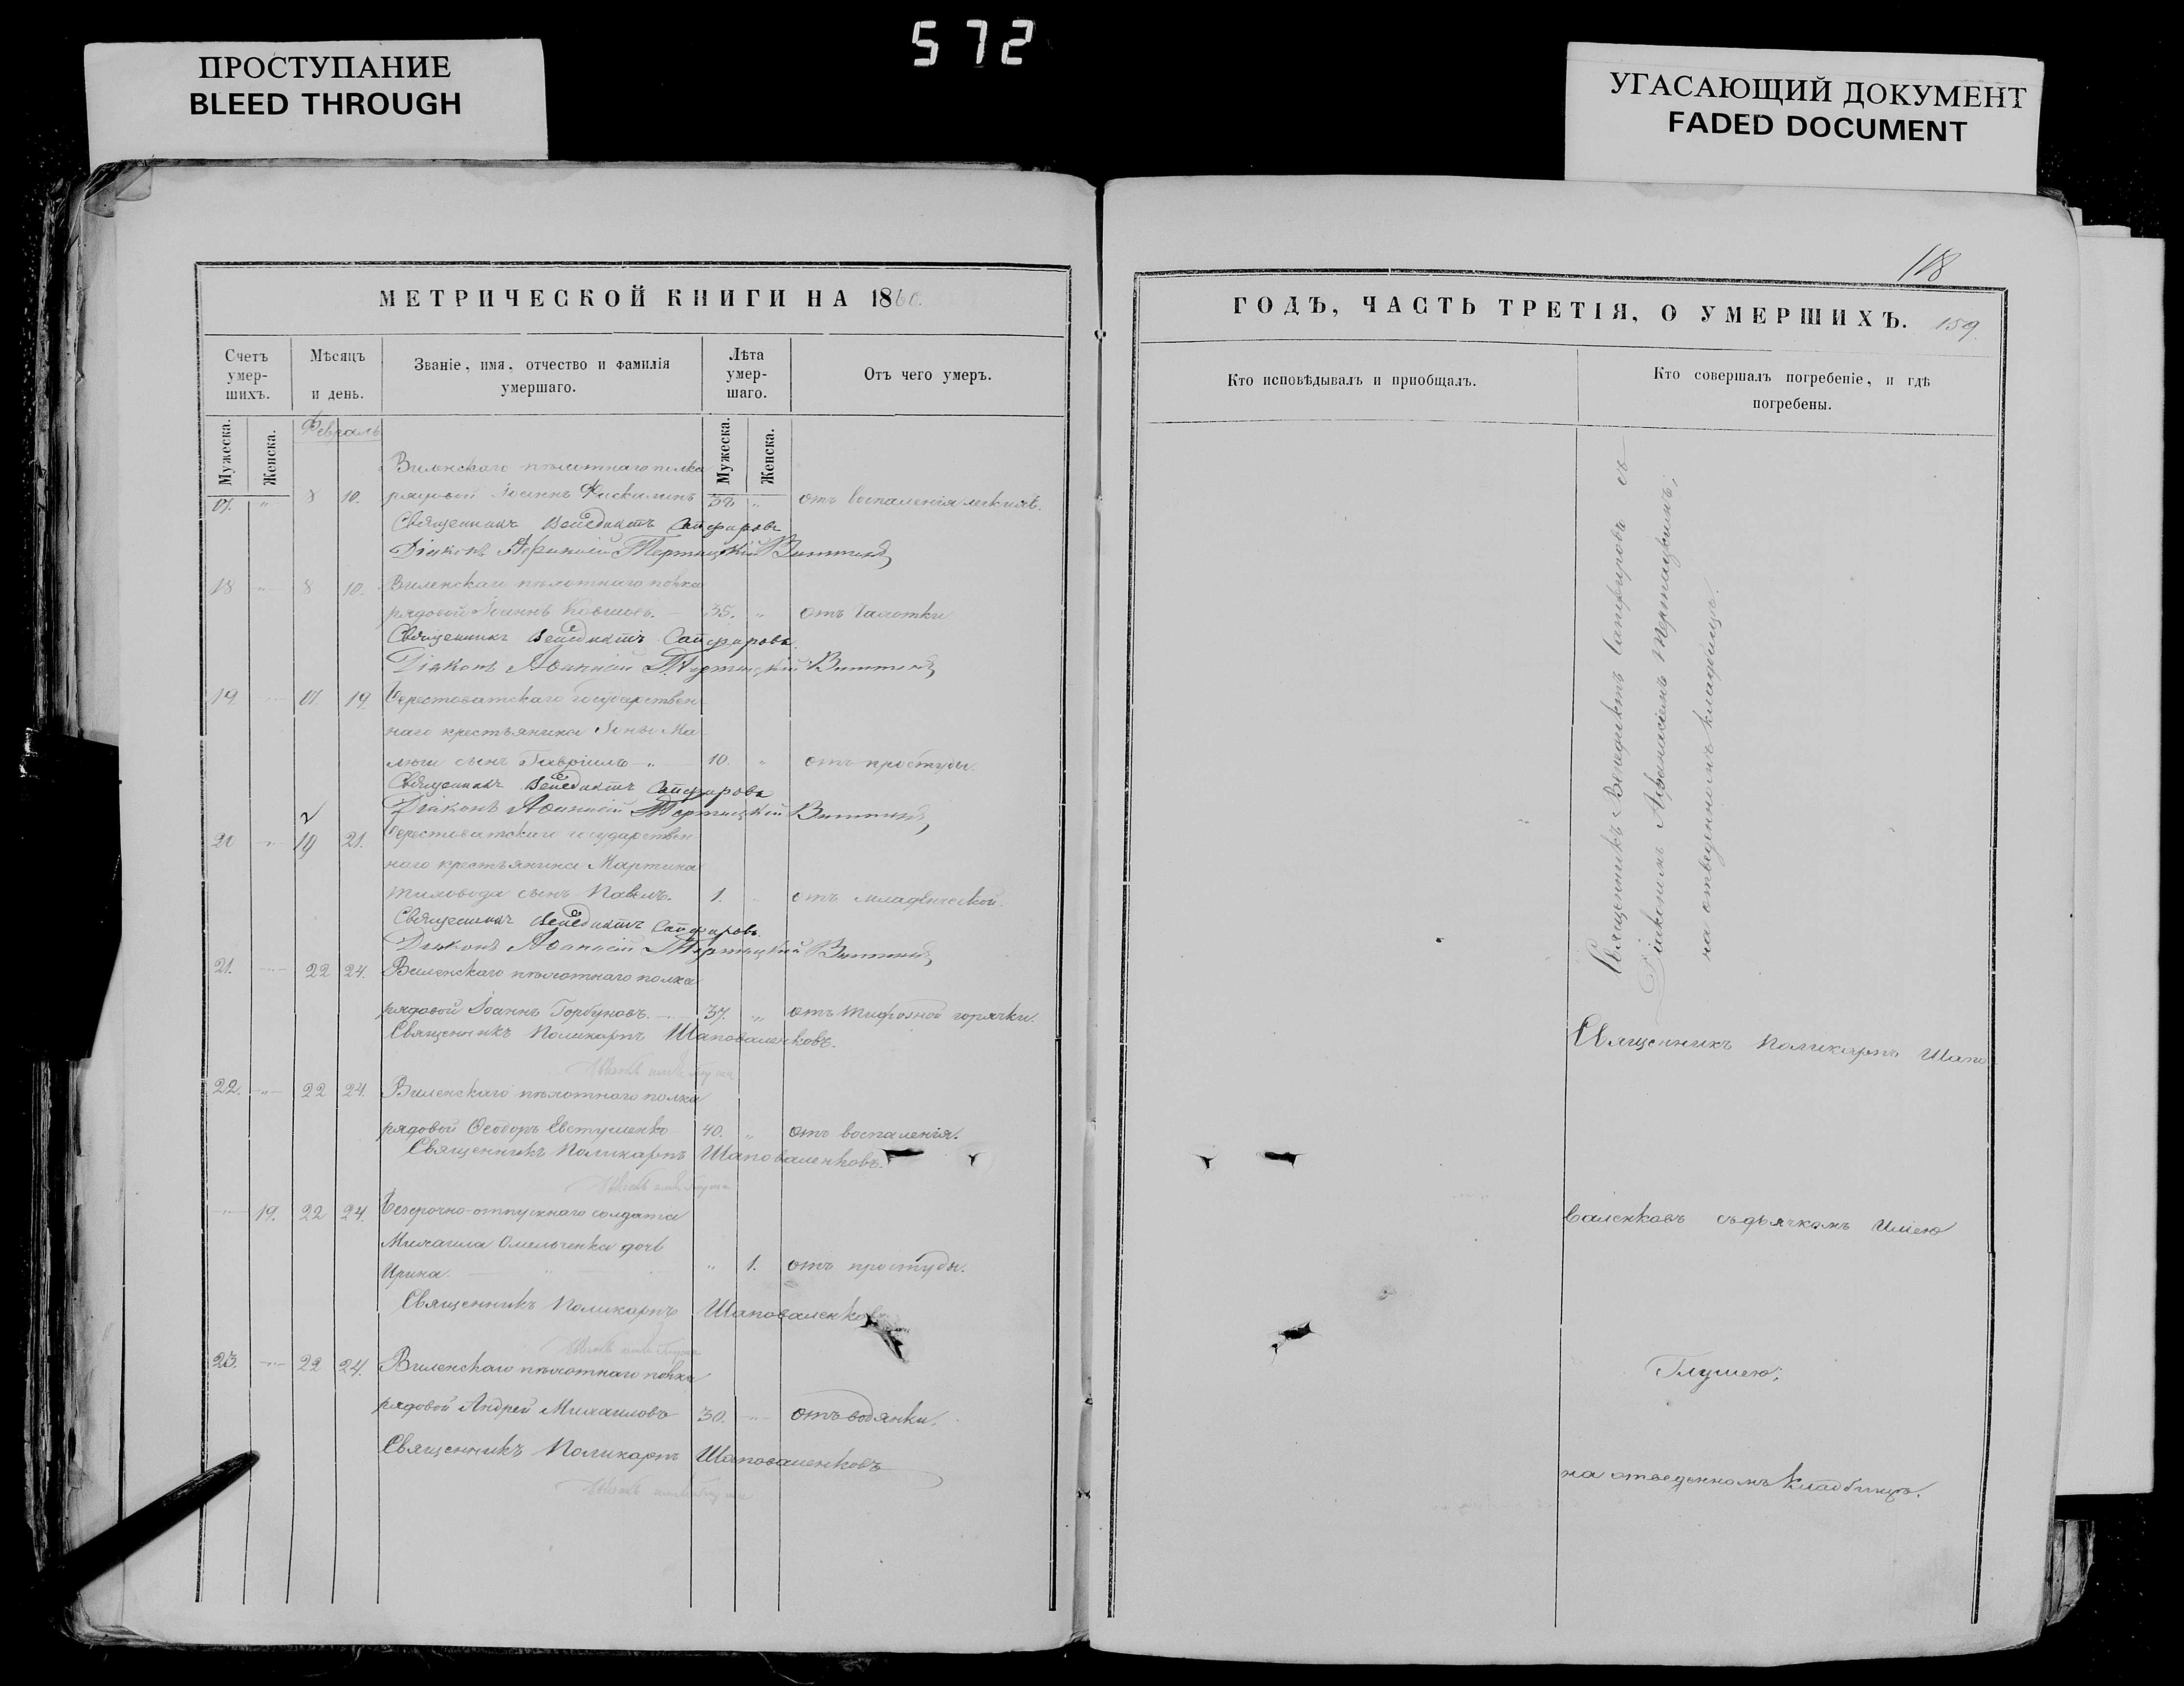 572
ПРОСТУПАНИЕ
BLEED THROUGH
УГАСАЮЩИЙ ДОКУМЕНТ
FADED DOCUMENT
МЕТРИЧЕСКОЙ КНИГИ НА 1860.
Счетъ умер-шихъ.
Мѣсяцъ и день.
Званіе, имя, отчество и фамилія умершаго.
Лѣта умер-шаго.
Отъ чего умеръ.
Мужеска.
Женска.
Мужеска.
Женска.
Февраль
Виленскаго пѣхотнаго полка
17. " 8 10. рядовой Іоаннъ 38 " отъ воспаленія легкихъ.
Священникъ Венедиктъ Сапфировъ
Діаконъ Афанасій Терпицкій
18 " 8 10. Виленскаго пѣхотнаго полка
рядовой Іоаннъ Ковшовъ. 35. " отъ чахотки
Священникъ Венедиктъ Сапфировъ.
Діаконъ Аѳанасій
19 17 19. Берестоватскаго государствен
наго крестьянина Іоны Ма
люги сынъ Гавріилъ 10. " отъ простуды.
Священникъ Венедиктъ Сапфировъ
Діаконъ Аѳанасій
20 " 19 21. Берестоватскаго государствен
наго крестьянина Мартина
сынъ Павелъ. 1. " отъ младенческой.
Священникъ Венедиктъ Сапфировъ.
Діаконъ Аѳанасій
21. 22 24. Виленскаго пѣхотнаго полка
рядовой Іоаннъ Горбуновъ. 37. " отъ тифозной горячки.
Священникъ Поликарпъ Шаповаленковъ.
22. " 22 24. Виленскаго пѣхотнаго полка
рядовой Ѳеодоръ Евтушенко 40. " отъ воспаленія.
Священникъ Поликарпъ Шаповаленковъ.
" 19. 22 24. Безсрочно-отпускнаго солдата
Михаила Омельченка дочь
Ирина. " 1. отъ простуды.
Священникъ Поликарпъ Шаповаленковъ
23. " 22 24. Виленскаго пѣхотнаго полка
рядовой Андрей Михаиловъ 30. " отъ водянки.
Священникъ Поликарпъ Шаповаленковъ
118
ГОДЪ, ЧАСТЬ ТРЕТІЯ, О УМЕРШИХЪ. 159.
Кто исповѣдывалъ и пріобщалъ.
Кто совершалъ погребеніе, и гдѣ погребены.
Священникъ Венедиктъ Сапфировъ съ
Діакономъ Афанасіемъ
на отведенномъ кладбищѣ.
Священникъ Поликарпъ Шапо
валенковъ съ дьячкомъ Иліею
Глушею;
на отведенномъ кладбищѣ.